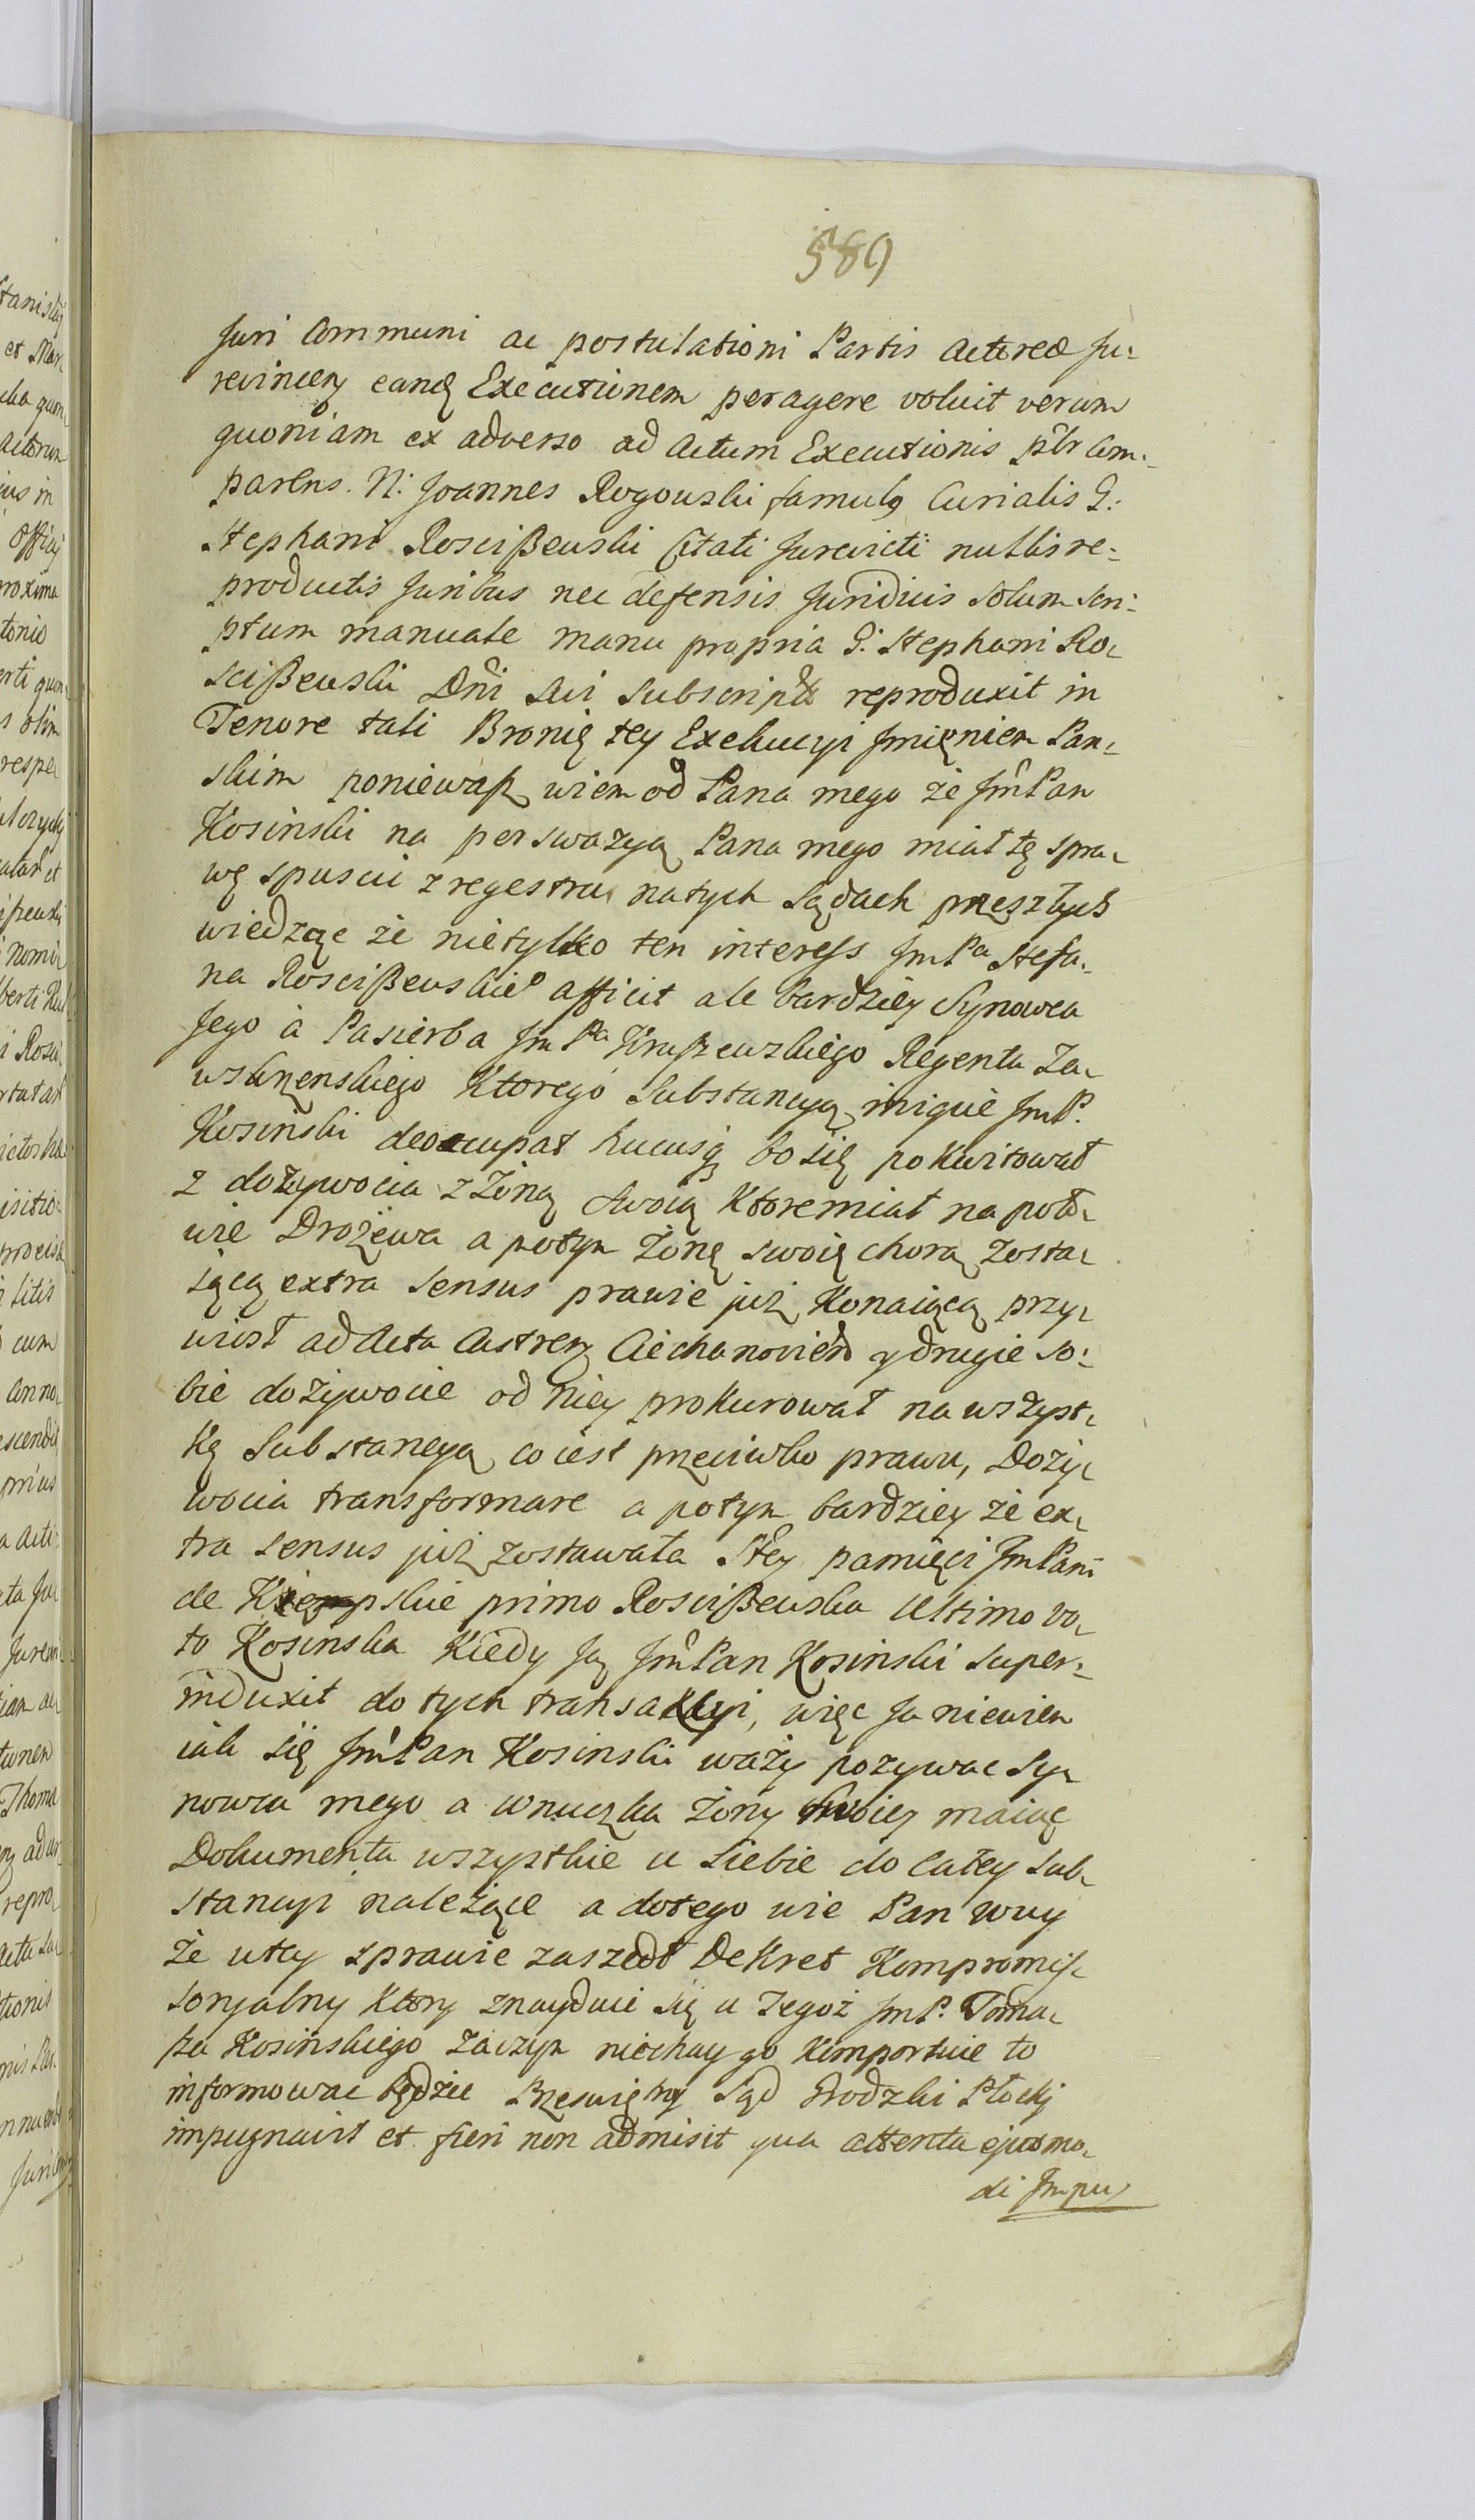 589
Juri Communi ac postulationi Partis actoreæ Ju-
revincen eandę Executionem peragere voluit verum
quoniam ex adverso ad Actum Executionis pstr Com-
parens. N: Joannes Rogouski famulg Curialis G:
Stephani Rosciẞewski Citati Jurevicti nullis re-
productis Juribus nec defensis Juridicis solum scri-
ptum manuale manu propria G: Stephani Ro-
sciẞewski Dni sui subscriptũ reproduxit in
Tenore tali Bronię tey Exekucyi Jmięniem Pan-
skim poniewaſz wiem od Pana mego że Jm̃ Pan
Kosinski na perswazyą Pana mego miał tę spra-
wę spuscic z regestru na tych Sądach przeszłych
wiedząc że nietylko ten interess Jm Pa Stefa-
na Rosciẞewskieo afficit ale bardziey Synowca
Jego à Pasierba Jm Pa Kruszewskiego Regenta Za-
wskrzenskiego Ktorego Substancyą inique Jm P.
Kosinski deocupat hucusqȝ bo się pokwitował
z dożywocia z Zoną Swoią Ktore miał na poło-
wie Drożewa a potym Żonę swoię chorą zosta-
iącą extra sensus prawie już Konaiącą przy-
wiosł ad Acta Castren Ciechanovien y drugie so-
bie dożywocie od Niey prokurował na wszyst-
kę Substancyą co iest przeciwko prawu, Doży-
wocia transformare a potym bardziey że ex-
tra sensus już zostawała Stey pamięci Jm Pani
de Kempskie primo Rosciẞewska ultimo vo-
to Kosinska Kiedy Ją Jm̃ Pan Kosinski super-
induxit do tych transakcyi, więc Ja niewiem
iak się Jm̃ Pan Kosinski waży pozywac Sy-
nowca mego a wnuczka Żony swoiey maiąc
Dokumenta wszystkie u siebie do całey Sub-
stancyi należące a do tego wie Pan Wuy
że w tey sprawie zaszedł Dekret Kompromiſ-
soryalny Ktory znayduie się u Tegoż Jm P. Toma-
ſza Kosinskiego Zaczym niechay go Komportuie to
informowac będzie Przeswiętny Sąd Grodzki Płocki
impugnavit et fieri non admisit qua attenta ejusmo-
di Impu